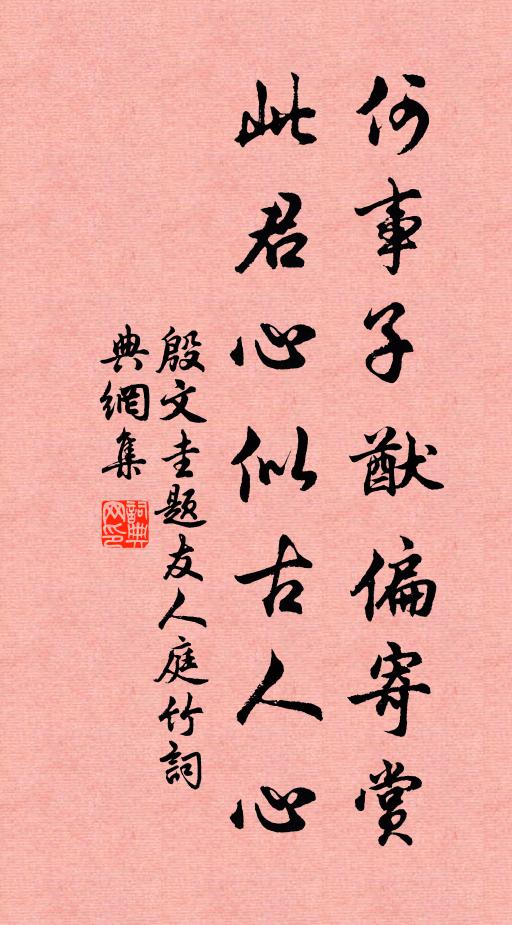 何事子猷偏寄賞
此君心似古人心
殷文圭題友人庭竹詞
典網集
詞典
网印